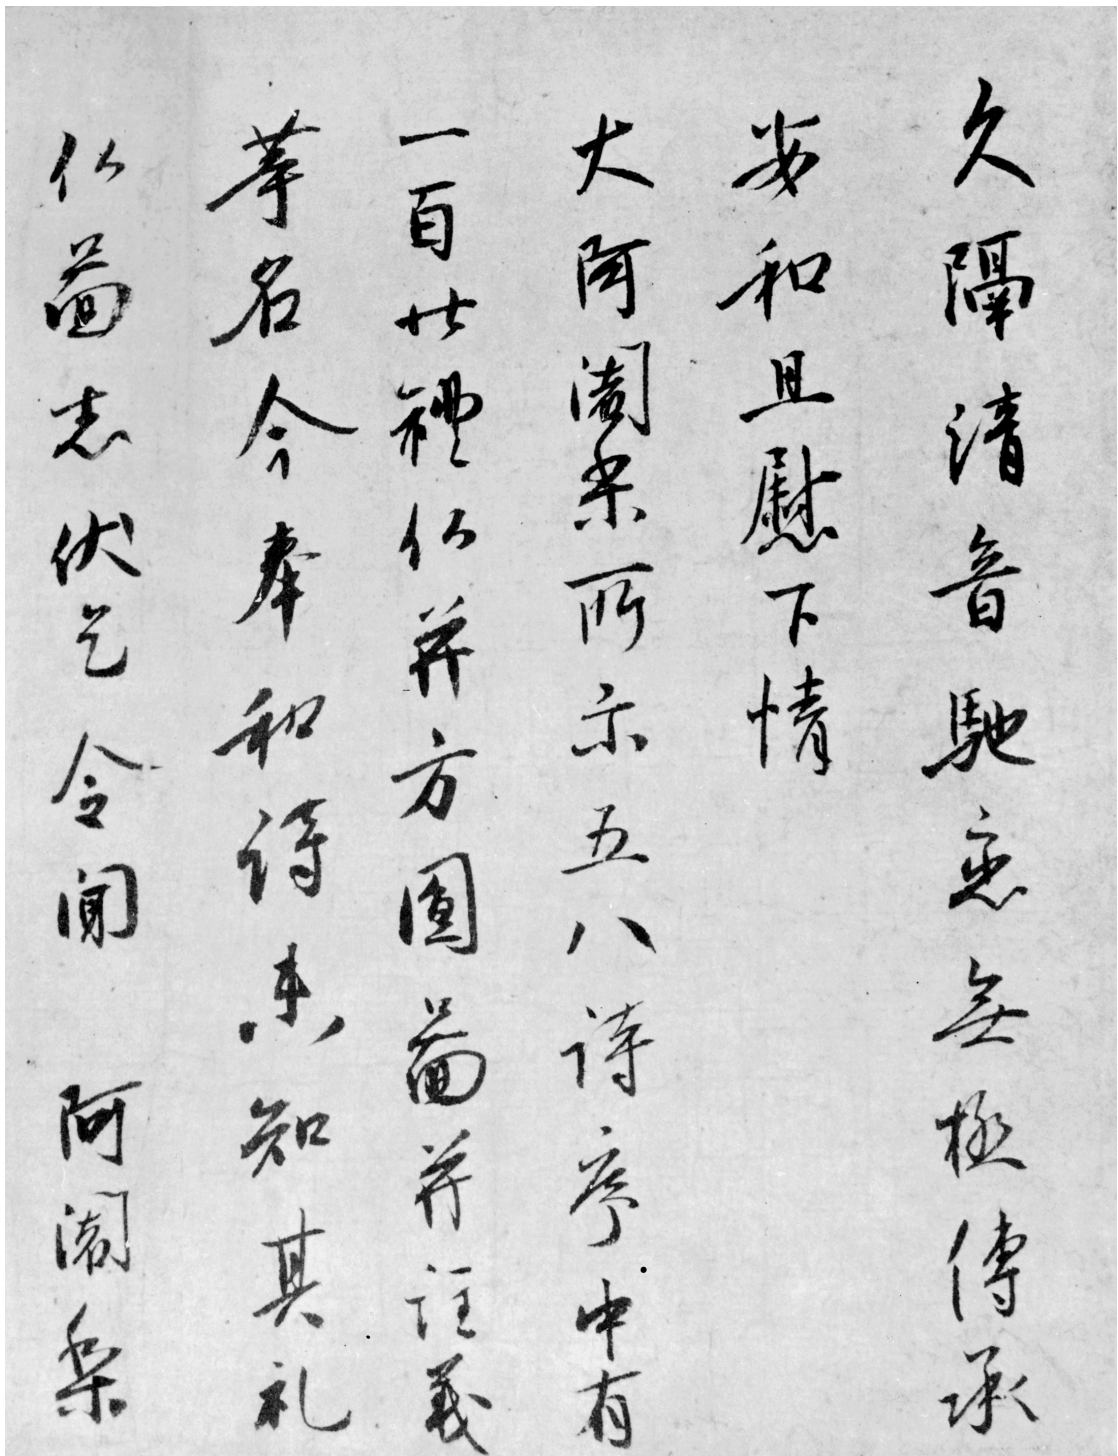 久隔清音馳恋無極傳承
安和且慰下情
大阿闍梨所示五八詩序中有
一百廿禮仏并方圓啚并註義
等名今奉和詩未知其礼
仏啚志伏乞令聞 阿闍梨